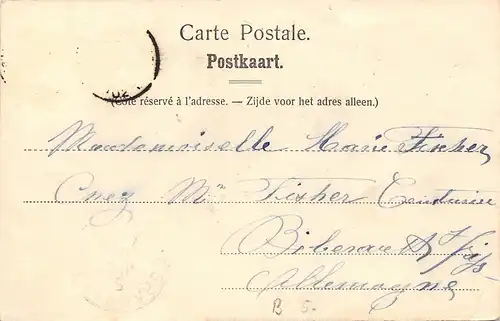 Carte Postale.
Postkaart.
(Côté réservé à l'adresse. — Zijde voor het adres alleen.)
Mademoiselle Marie Fixher
Chez Mr Fixher
Biberac A
Allemagne
B 5-